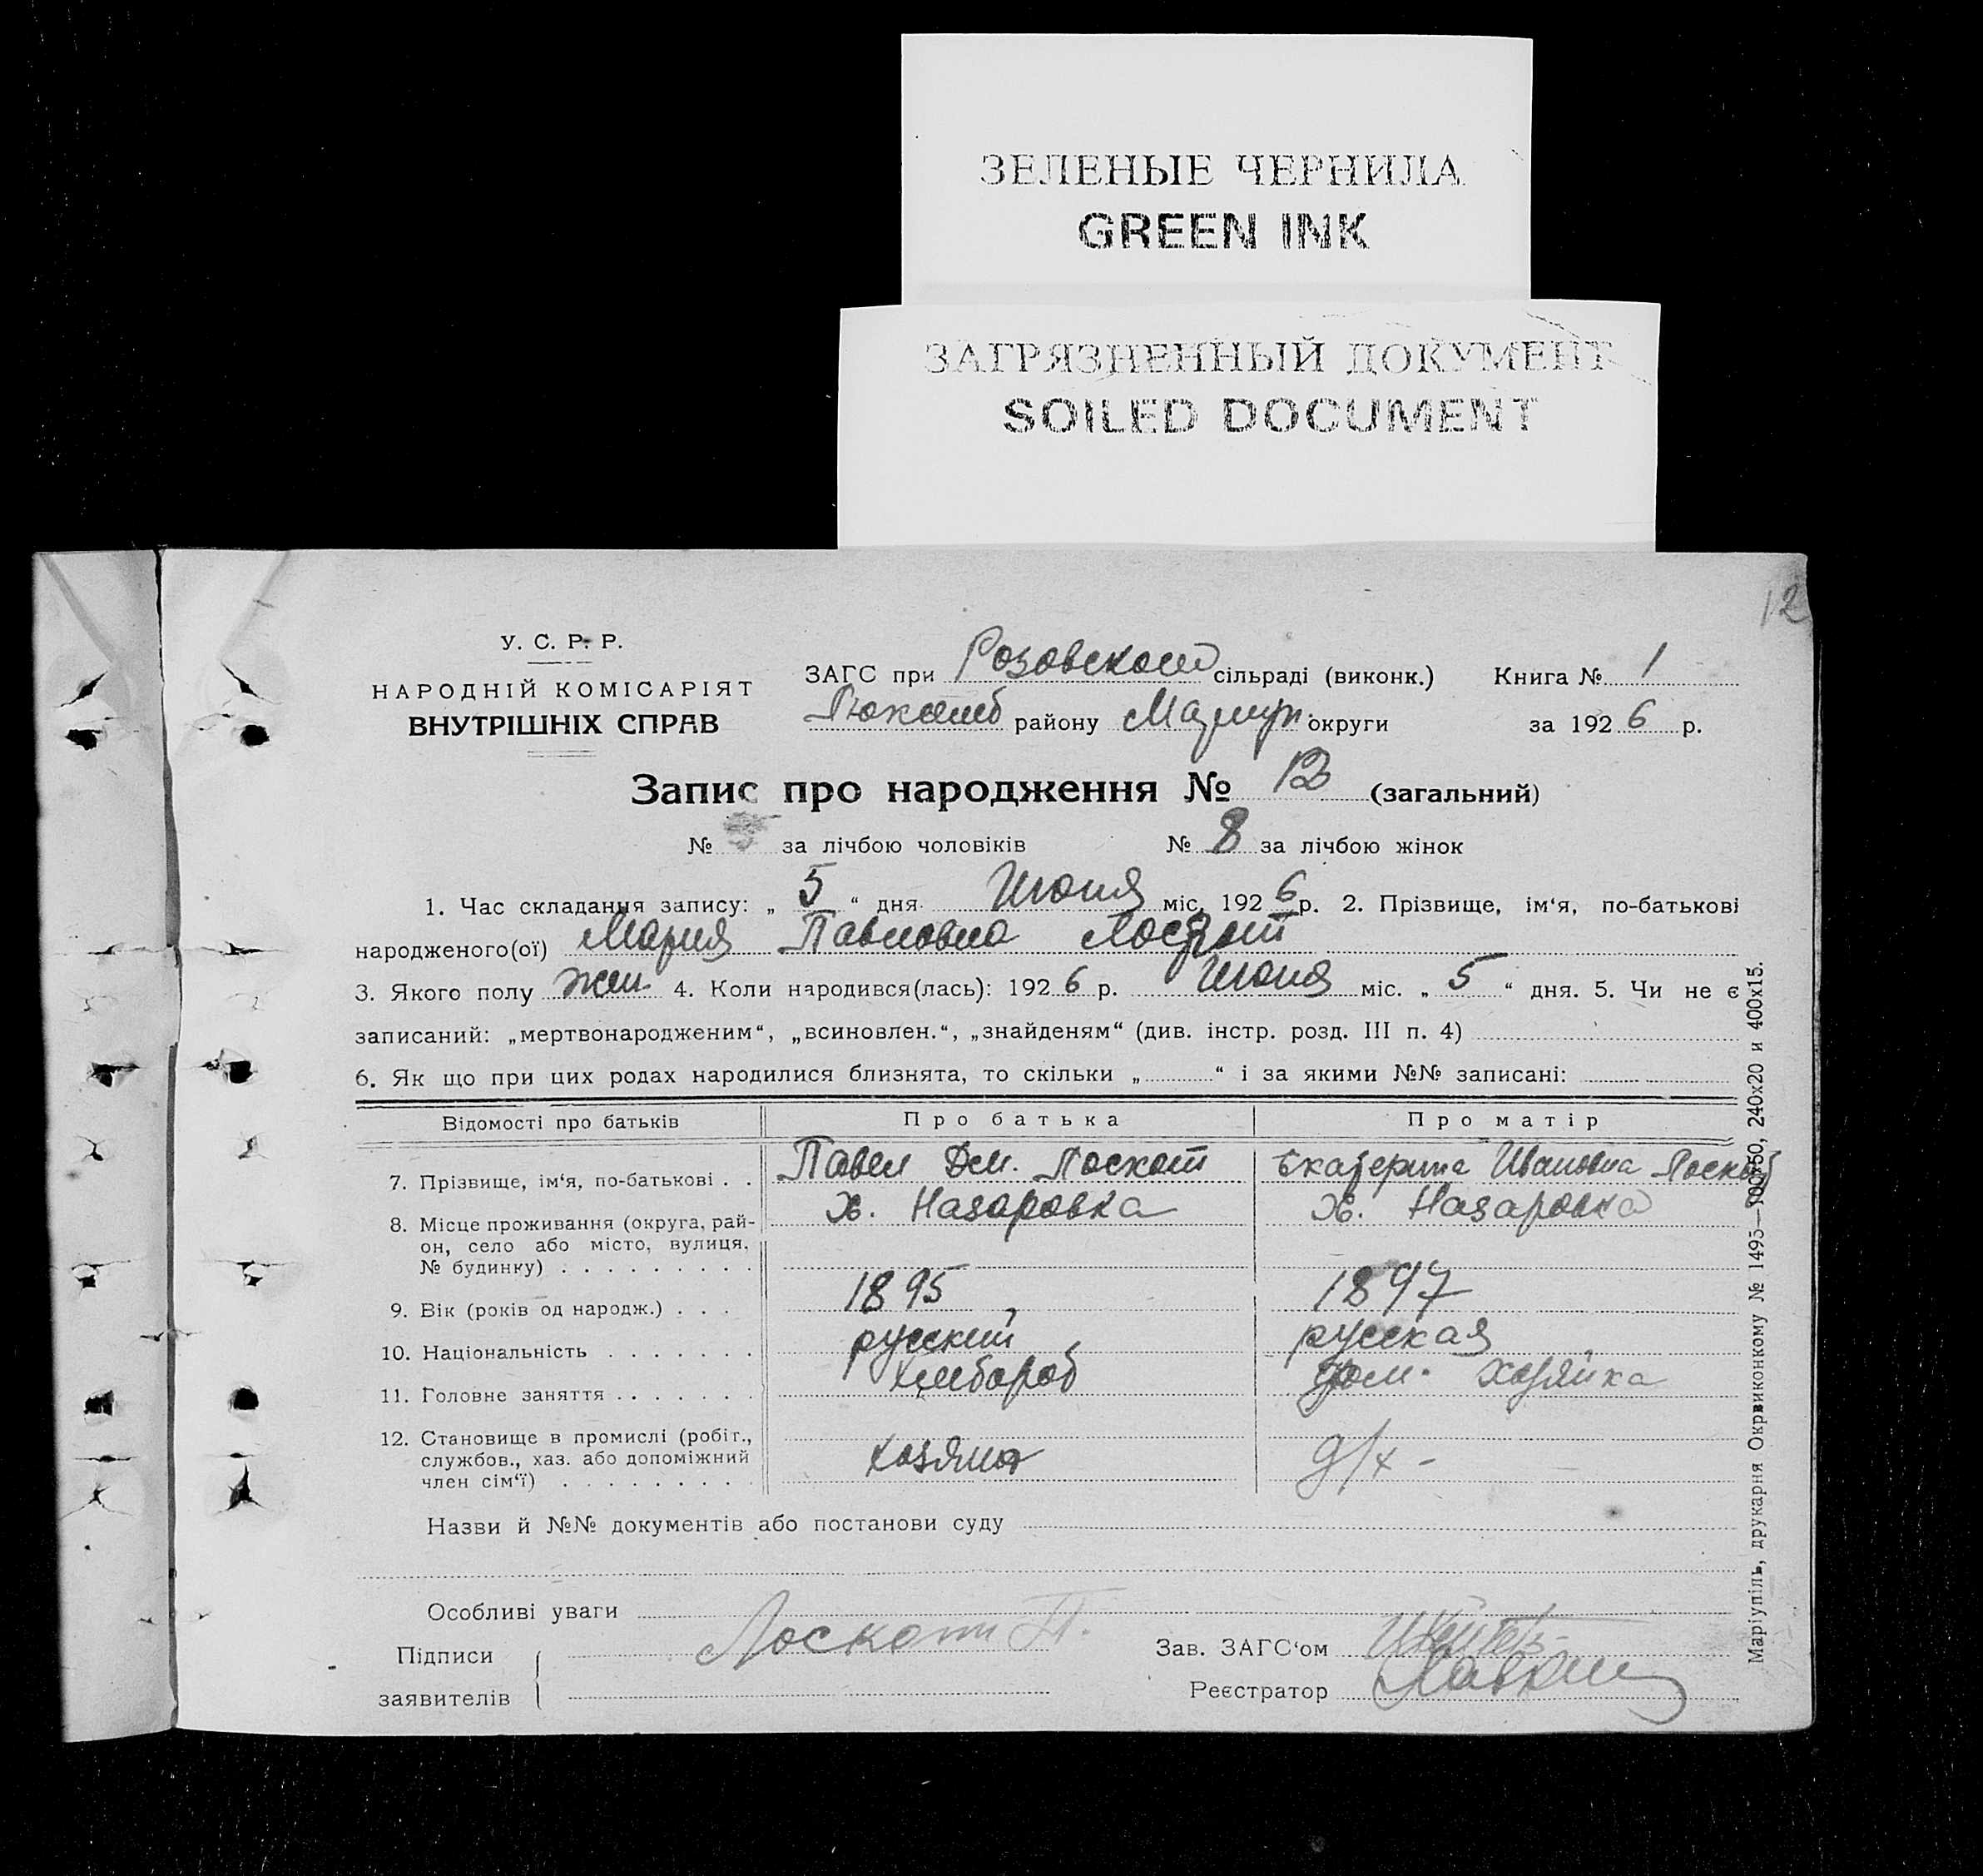 ЗЕЛЕНЫЕ ЧЕРНИЛА
GREEN INK
ЗАГРЯЗНЕННЫЙ ДОКУМЕНТ
SOILED DOCUMENT
12
У. С. Р. Р.
НАРОДНІЙ КОМІСАРІЯТ
ВНУТРІШНІХ СПРАВ
ЗАГС при Розовском сільраді (виконк.) Книга № 1
району Мариуп. округи за 1926 р.
Запис про народження № 12 (загальний)
№ за лічбою чоловіків № 8 за лічбою жінок
1. Час складання запису: „ 5 “ дня Июня міс. 1926 р. 2. Прізвище, ім‘я, по-батькові
народженого(ої) Мария Павловна Лоскот
3. Якого полу жен 4. Коли народився(лась): 1926 р. Июня міс. „ 5 “ дня. 5. Чи не є
записаний: „мертвонародженим“, „всиновлен.“, „знайденям“ (див. інстр. розд. III п. 4)
6. Як що при цих родах народилися близнята, то скільки „ “ і за якими №№ записані:
Відомості про батьків Про батька Про матір
7. Прізвище, ім‘я, по-батькові . . Павел Дм. Лоскот Екатерина Ивановна Лоскот
8. Місце проживання (округа, рай- х. Назаровка х. Назаровка
он, село або місто, вулиця,
№ будинку) . . . . . . . . .
9. Вік (років од народж.) . . . 1895 1897
10. Національність . . . . . . . русский русская
11. Головне заняття . . . . . . . хлебороб дом. хозяйка
12. Становище в промислі (робіт.,
службов., хаз. або допоміжний хозяин д/х -
член сім‘ї) . . . . . . . . .
Назви й №№ документів або постанови суду
Особливі уваги
Підписи Лоскот П. Зав. ЗАГС‘ом
заявителів Реєстратор
Маріупіль, друкарня Окрвиконкому № 1495—100х50, 240х20 и 400х15.